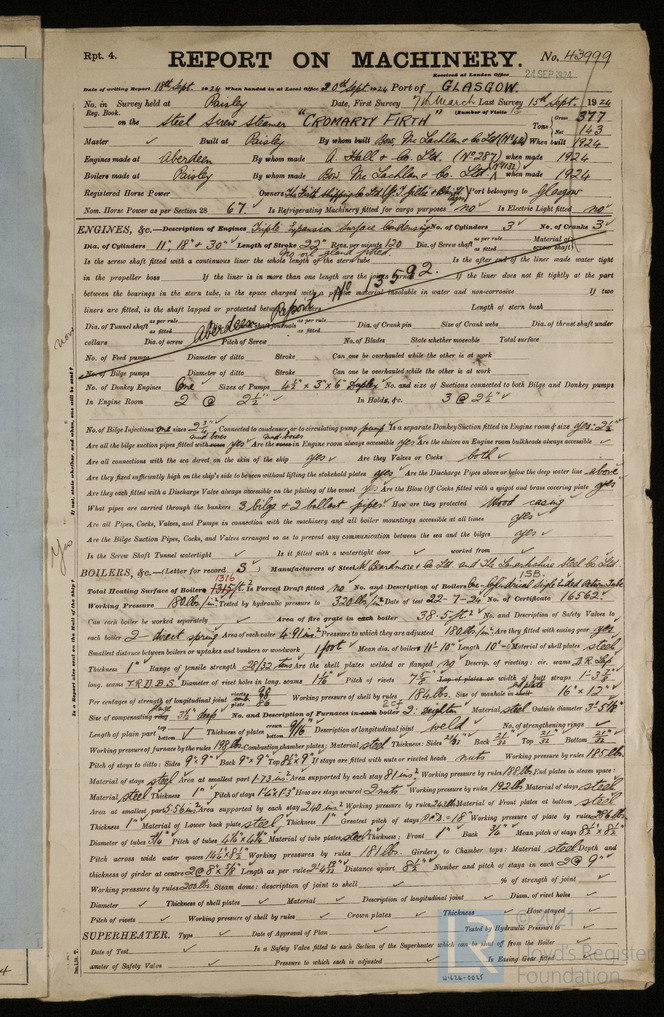 Rpt. 4.
REPORT ON MACHINERY. No. 43999
Received at London Office 24 SEP 1924
Date of writing Report 18th Sept. 1924 When handed in at Local Office 20th Sept 1924 Port of GLASGOW.
No. in Survey held at Paisley Date, First Survey 7th March Last Survey 15th Sept. 1924
Reg. Book. (Number of Visits
on the Steel Screw Steamer "CROMARTY FIRTH" Tons Gross 377 Net 143
Master ✓ Built at Paisley By whom built Bow, McLachlan & Co Ltd When built 1924
Engines made at Aberdeen By whom made A. Hall & Co. Ltd. (No 287) when made 1924
Boilers made at Paisley By whom made Bow. McLachlan & Co. Ltd. when made 1924
Registered Horse Power Owners The Firth Shipping Co Ltd Port belonging to Glasgow
Nom. Horse Power as per Section 28 67. Is Refrigerating Machinery fitted for cargo purposes no Is Electric Light fitted no
ENGINES, &c.—Description of Engines Triple Expansion Surface Condensing No. of Cylinders 3 No. of Cranks 3
Dia. of Cylinders 11", 18" & 30" Length of Stroke 22" Revs. per minute 120 Dia. of Screw shaft as per rule as fitted Material of screw shaft
no oil gland fitted.
Is the screw shaft fitted with a continuous liner the whole length of the stern tube Is the after end of the liner made water tight
in the propeller boss If the liner is in more than one length are the joints burned If the liner does not fit tightly at the part
between the bearings in the stern tube, is the space charged with a plastic material insoluble in water and non-corrosive If two
liners are fitted, is the shaft lapped or protected between the liners Length of stern bush
Aberdeen Report No 13592.
Dia. of Tunnel shaft as per rule as fitted Dia. of Crank shaft journals as per rule as fitted Dia. of Crank pin Size of Crank webs Dia. of thrust shaft under
collars Dia. of screw Pitch of Screw No. of Blades State whether moveable Total surface
No. of Feed pumps Diameter of ditto Stroke Can one be overhauled while the other is at work
No. of Bilge pumps Diameter of ditto Stroke Can one be overhauled while the other is at work
No. of Donkey Engines One Sizes of Pumps 4½" × 3" × 6" Duplex No. and size of Suctions connected to both Bilge and Donkey pumps
In Engine Room 2 @ 2½" In Holds, &c. 3 @ 2½"
No. of Bilge Injections one sizes 2¾" Connected to condenser, or to circulating pump pump Is a separate Donkey Suction fitted in Engine room & size yes. 2½"
Are all the bilge suction pipes fitted with mud boxes yes Are the mud boxes in Engine room always accessible yes Are the sluices on Engine room bulkheads always accessible ✓
Are all connections with the sea direct on the skin of the ship yes Are they Valves or Cocks both
Are they fixed sufficiently high on the ship's side to be seen without lifting the stokehold plates yes Are the Discharge Pipes above or below the deep water line above
Are they each fitted with a Discharge Valve always accessible on the plating of the vessel yes Are the Blow Off Cocks fitted with a spigot and brass covering plate yes
What pipes are carried through the bunkers 3 bilge & 2 ballast pipes How are they protected Wood casing
Are all Pipes, Cocks, Valves, and Pumps in connection with the machinery and all boiler mountings accessible at all times yes
Are the Bilge Suction Pipes, Cocks, and Valves arranged so as to prevent any communication between the sea and the bilges yes
Is the Screw Shaft Tunnel watertight ✓ Is it fitted with a watertight door ✓ worked from ✓
BOILERS, &c.—(Letter for record S) Manufacturers of Steel W Beardmore & Co Ltd and The Lanarkshire Steel Co. Ltd.
Total Heating Surface of Boilers 1316 1315 ft.² Is Forced Draft fitted no No. and Description of Boilers One-Cylindrical Single Ended Return Tube 1SB.
Working Pressure 180 lbs/in² Tested by hydraulic pressure to 320 lbs/in² Date of test 22-7-24 No. of Certificate 16562
Can each boiler be worked separately ✓ Area of fire grate in each boiler 38.5 ft.² No. and Description of Safety Valves to
each boiler 2 direct spring Area of each valve 4.91 ins.² Pressure to which they are adjusted 180 lbs/in² Are they fitted with easing gear yes
Smallest distance between boilers or uptakes and bunkers or woodwork 1 foot Mean dia. of boilers 11'-10" Length 10'-0" Material of shell plates steel
Thickness 1" Range of tensile strength 28/32 tons Are the shell plates welded or flanged no Descrip. of riveting: cir. seams D.R. Lap
long. seams T.R.D.B.S. Diameter of rivet holes in long. seams Pitch of rivets Lap of plates or width of butt straps 1'-3½"
Per centages of strength of longitudinal joint rivets 90 plate 86 Working pressure of shell by rules 184 lbs. Size of manhole in end plate 16" × 12"
Size of compensating flange 3½" deep No. and Description of Furnaces in each boiler 2: Deighton Material steel Outside diameter 3'-5 5/16"
Length of plain part top bottom ✓ Thickness of plates crown bottom 9/16" Description of longitudinal joint weld No. of strengthening rings ✓
Working pressure of furnace by the rules 198 lbs. Combustion chamber plates: Material steel Thickness: Sides 21/32 Back 21/32 Top 21/32 Bottom 21/32
Pitch of stays to ditto: Sides 9" × 9" Back 9" × 9" Top 8½" × 9" If stays are fitted with nuts or riveted heads nuts Working pressure by rules 185 lbs.
Material of stays steel Area at smallest part 1.73 ins² Area supported by each stay 81 ins² Working pressure by rules 188 lbs End plates in steam space:
Material steel Thickness 1" Pitch of stays 1'-4" × 1'-3" How are stays secured 2 nuts Working pressure by rules 192 lbs Material of stays steel
Area at smallest part 5.56 ins² Area supported by each stay 240 ins² Working pressure by rules 263 lbs Material of Front plates at bottom steel
Thickness 1" Material of Lower back plate steel Thickness 1" Greatest pitch of stays Working pressure of plate by rules
Diameter of tubes 3¼" Pitch of tubes 4¼" × 4¼" Material of tube plates steel Thickness: Front 1" Back ¾" Mean pitch of stays 8½" × 8½"
Pitch across wide water spaces 14½" × 8½" Working pressures by rules 181 lbs. Girders to Chamber tops: Material steel Depth and
thickness of girder at centre 2 @ 8" × 5/8" Length as per rule Distance apart 8½" Number and pitch of stays in each 2 @ 9"
Working pressure by rules 200 lbs. Steam dome: description of joint to shell ✓ % of strength of joint ✓
Diameter ✓ Thickness of shell plates ✓ Material ✓ Description of longitudinal joint ✓ Diam. of rivet holes ✓
Pitch of rivets ✓ Working pressure of shell by rules ✓ Crown plates ✓ Thickness ✓ How stayed ✓
SUPERHEATER. Type ✓ Date of Approval of Plan ✓ Tested by Hydraulic Pressure to
Date of Test ✓ Is a Safety Valve fitted to each Section of the Superheater which can be shut off from the Boiler ✓
ameter of Safety Valve ✓ Pressure to which each is adjusted ✓ Is Easing Gear fitted ✓
© 2021
Lloyd's Register
Foundation
W1626-0025